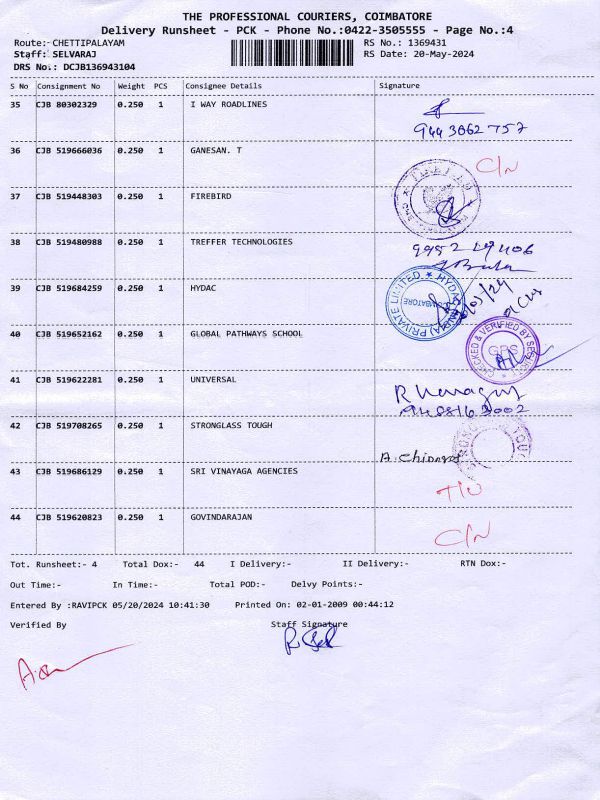 THE PROFESSIONAL COURIERS, COIMBATORE
Delivery Runsheet - PCK - Phone No.:0422-3505555 - Page No.:4
Route:- CHETTIPALAYAM RS No.: 1369431
Staff: SELVARAJ RS Date: 20-May-2024
DRS No.: DCJB136943104
S No Consignment No Weight PCS Consignee Details Signature
35 CJB 80302329 0.250 1 I WAY ROADLINES
9443062757
36 CJB 519666036 0.250 1 GANESAN. T C/N
37 CJB 519448303 0.250 1 FIREBIRD
38 CJB 519480988 0.250 1 TREFFER TECHNOLOGIES
39 CJB 519684259 0.250 1 HYDAC
PRIVATE LIMITED ★ HYDAC
COIMBATORE
40 CJB 519652162 0.250 1 GLOBAL PATHWAYS SCHOOL
CHECKED & VERIFIED BY SECURITY
GPS
41 CJB 519622281 0.250 1 UNIVERSAL
42 CJB 519708265 0.250 1 STRONGLASS TOUGH
43 CJB 519686129 0.250 1 SRI VINAYAGA AGENCIES
44 CJB 519620823 0.250 1 GOVINDARAJAN C/N
Tot. Runsheet:- 4 Total Dox:- 44 I Delivery:- II Delivery:- RTN Dox:-
Out Time:- In Time:- Total POD:- Delvy Points:-
Entered By :RAVIPCK 05/20/2024 10:41:30 Printed On: 02-01-2009 00:44:12
Verified By Staff Signature